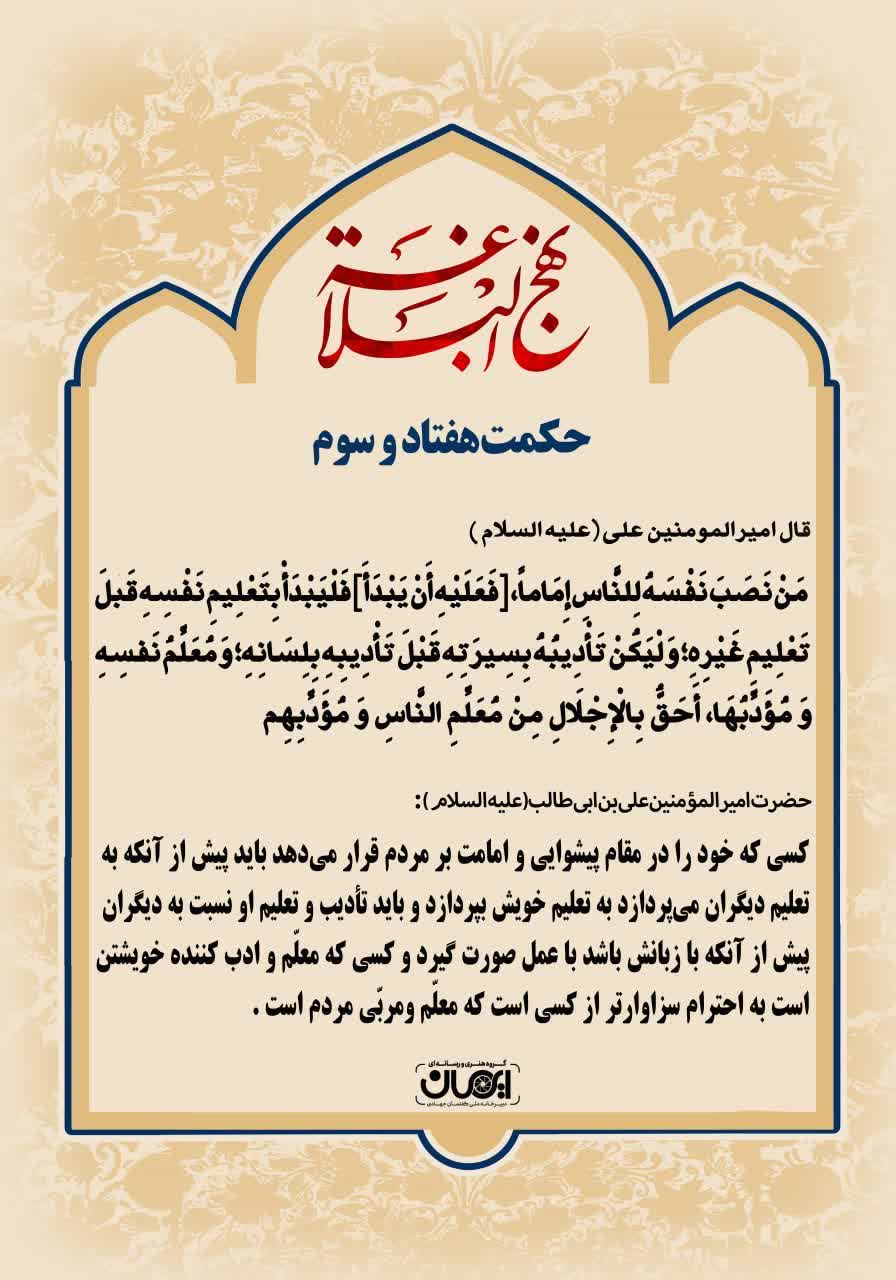 نهج البلاغة
حکمت هفتاد و سوم
قال امیرالمومنین علی (علیه السلام )
مَنْ نَصَبَ نَفْسَهُ لِلنَّاسِ إِمَاماً، [فَعَلَيْهِ أَنْ يَبْدَأَ] فَلْيَبْدَأْ بِتَعْلِيمِ نَفْسِهِ قَبلَ
تَعْلِيمِ غَيْرِهِ؛ وَلْيَكُنْ تَأْدِيبُهُ بِسِيرَتِهِ قَبْلَ تَأْدِيبِهِ بِلِسَانِهِ؛ وَ مُعَلِّمُ نَفسِهِ
وَ مُؤَدِّبُهَا، أَحَقُّ بِالْإِجْلَالِ مِنْ مُعَلِّمِ النَّاسِ وَ مُؤَدِّبِهِم
حضرت امیرالمؤمنین علی بن ابی طالب (علیه السلام):
کسی که خود را در مقام پیشوایی و امامت بر مردم قرار می‌دهد باید پیش از آنکه به
تعلیم دیگران می‌پردازد به تعلیم خویش بپردازد و باید تأدیب و تعلیم او نسبت به دیگران
پیش از آنکه با زبانش باشد با عمل صورت گیرد و کسی که معلّم و ادب کننده خویشتن
است به احترام سزاوارتر از کسی است که معلّم ومربّی مردم است .
گروه هنری و رسانه ای
دبیرخانه ملی گفتمان جهادی